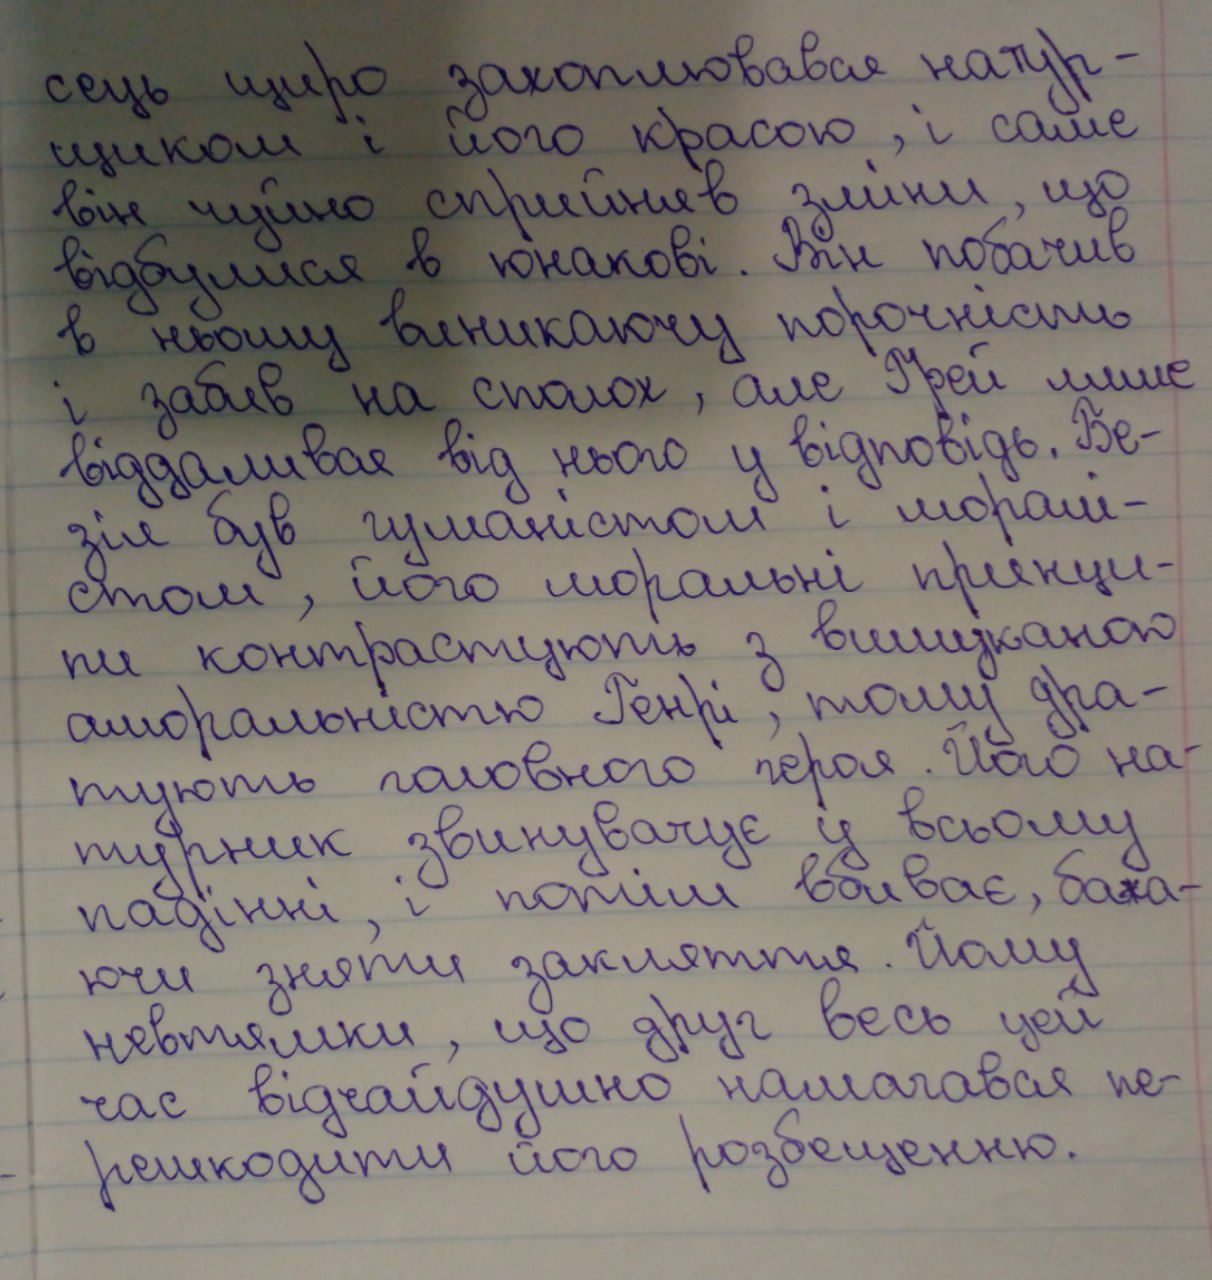 сець щиро захоплювався натур-
щиком і його красою, і саме
він чуйно сприйняв зміни, що
відбулися в юнакові. Він побачив
в ньому виникаючу порочність
і забив на сполох, але Грей лише
віддалився від нього у відповідь. Бе-
зіл був гуманістом і моралі-
стом, його моральні принци-
пи контрастують з вишуканою
аморальністю Генрі, тому дра-
тують головного героя. Його на-
турник звинувачує у всьому
падінні, і потім вбиває, бажа-
ючи зняти закляття. Йому
невтямки, що друг весь цей
час відчайдушно намагався пе-
решкодити його розбещенню.